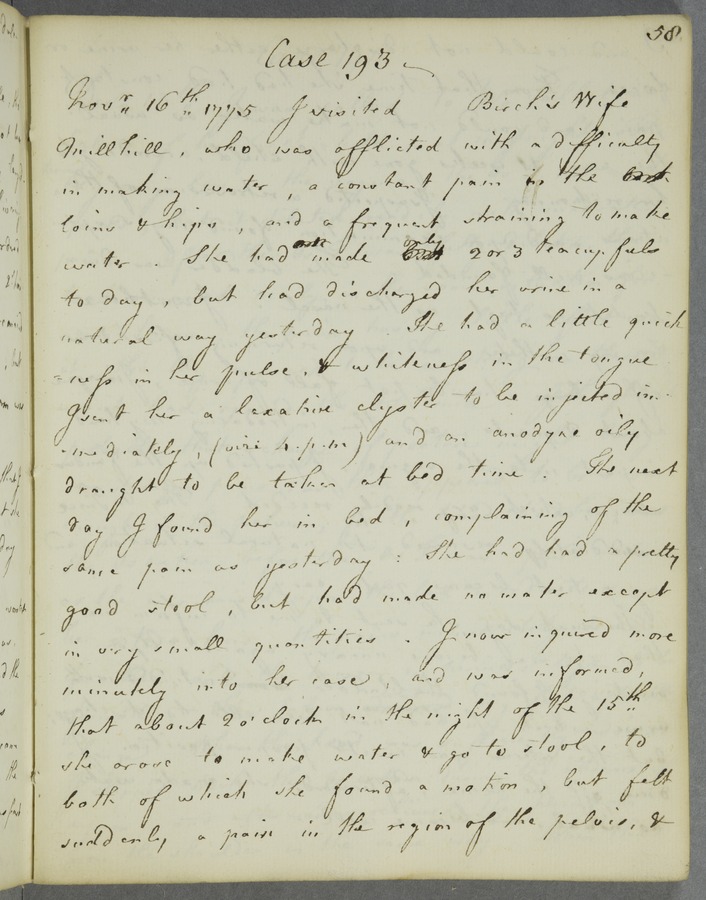 58
Case 193
Novr 16th 1775 I visited Birch's Wife
Millhill, who was afflicted with a difficulty
in making water, a constant pain in the
loins & hips, and a frequent straining to make
water. She had made only 2 or 3 teacupfuls
to day, but had discharged her urine in a
natural way yesterday. She had a little quick
=ness in her pulse, & whiteness in the tongue
I sent her a laxative clyster to be injected im-
-mediately, (viz 4. p.m) and an anodyne oily
draught to be taken at bed time. The next
day I found her in bed, complaining of the
same pain as yesterday: She had had a pretty
good stool, but had made no water except
in very small quantities. I now inquired more
minutely into her case, and was informed,
that about 2 o'clock in the night of the 15th
she arose to make water & go to stool, to
both of which she found a motion, but felt
suddenly a pain in the region of the pelvis, &